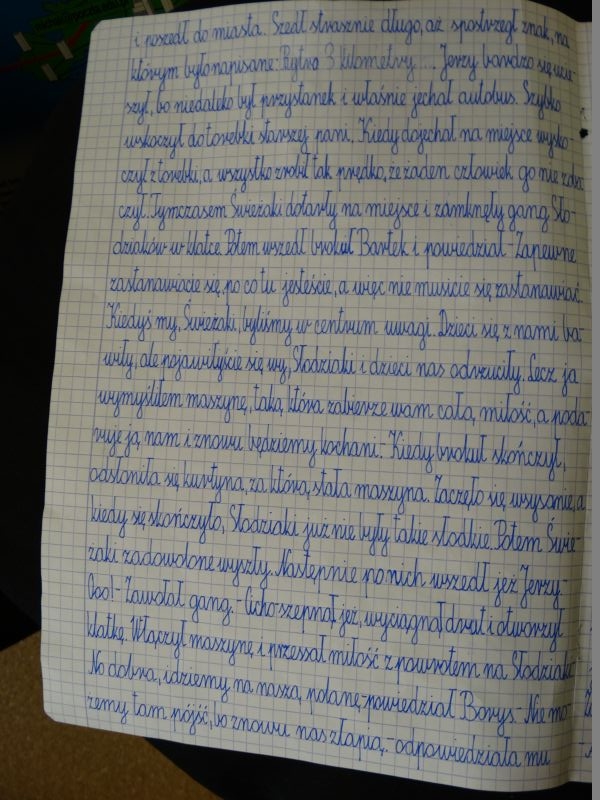 i poszedł do miasta. Szedł strasznie długo, aż spostrzegł znak, na
którym było napisane: Rytwo 3 kilometry... Jerzy bardzo się ucie-
szył, bo niedaleko był przystanek i właśnie jechał autobus. Szybko
wskoczył do torebki starszej pani. Kiedy dojechał na miejsce wysko-
czył z torebki, a wszystko zrobił tak prędko, że żaden człowiek go nie zoba-
czył. Tymczasem Świeżaki dotarły na miejsce i zamknęły gang Sło-
dziaków w klatce. Potem wszedł brokuł Bartek i powiedział - Zapewne
zastanawiacie się, po co tu jesteście, a więc nie musicie się zastanawiać.
Kiedyś my, Świeżaki, byliśmy w centrum uwagi. Dzieci się z nami ba-
wiły, ale pojawiłyście się wy, Słodziaki i dzieci nas odrzuciły. Lecz ja
wymyśliłem maszynę, taką która zabierze wam całą miłość, a poda-
ruje ją nam i znowu będziemy kochani. Kiedy brokuł skończył,
odsłoniła się kurtyna, za którą stała maszyna. Zaczęło się wsysanie, a
kiedy się skończyło, Słodziaki już nie były takie słodkie. Potem Świe-
żaki zadowolone wyszły. Następnie po nich wszedł jeż Jerzy -
Ooo! - Zawołał gang. - Cicho - szepnął jeż, wyciągnął drut i otworzył
klatkę. Włączył maszynę i przessał miłość z powrotem na Słodziaki
No dobra, idziemy na naszą polanę - powiedział Borys. - Nie mo-
żemy tam pójść, bo znowu nas złapią. - odpowiedziała mu